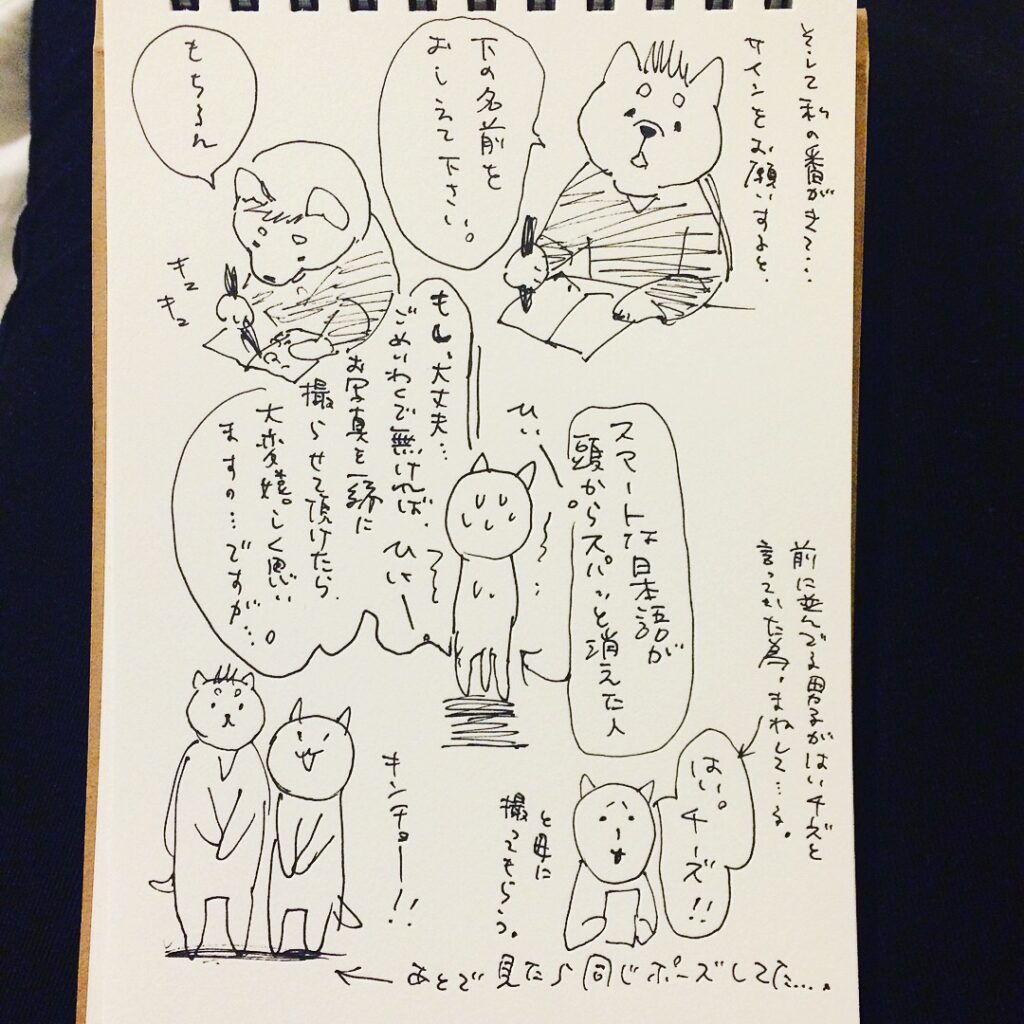 そして私の番がきて・・・
サインをお願いすると、
下の名前を
おしえて下さい。
もちろん
キュ
キュ
スマートな日本語が
頭からスパッと消えた人
ひぃ
もし、大丈夫…
ごめいわくで無ければ、
お写真を一緒に
撮らせて頂けたら
大変嬉しく思い
ますの…ですが…。
ひぃー
前に並んでる男子がはいチーズと
言ってた為、まねして…る。
はい。
チーズ!!
と母に
撮ってもらう。
キンチョー!!
← あとで見たら同じポーズしてた….